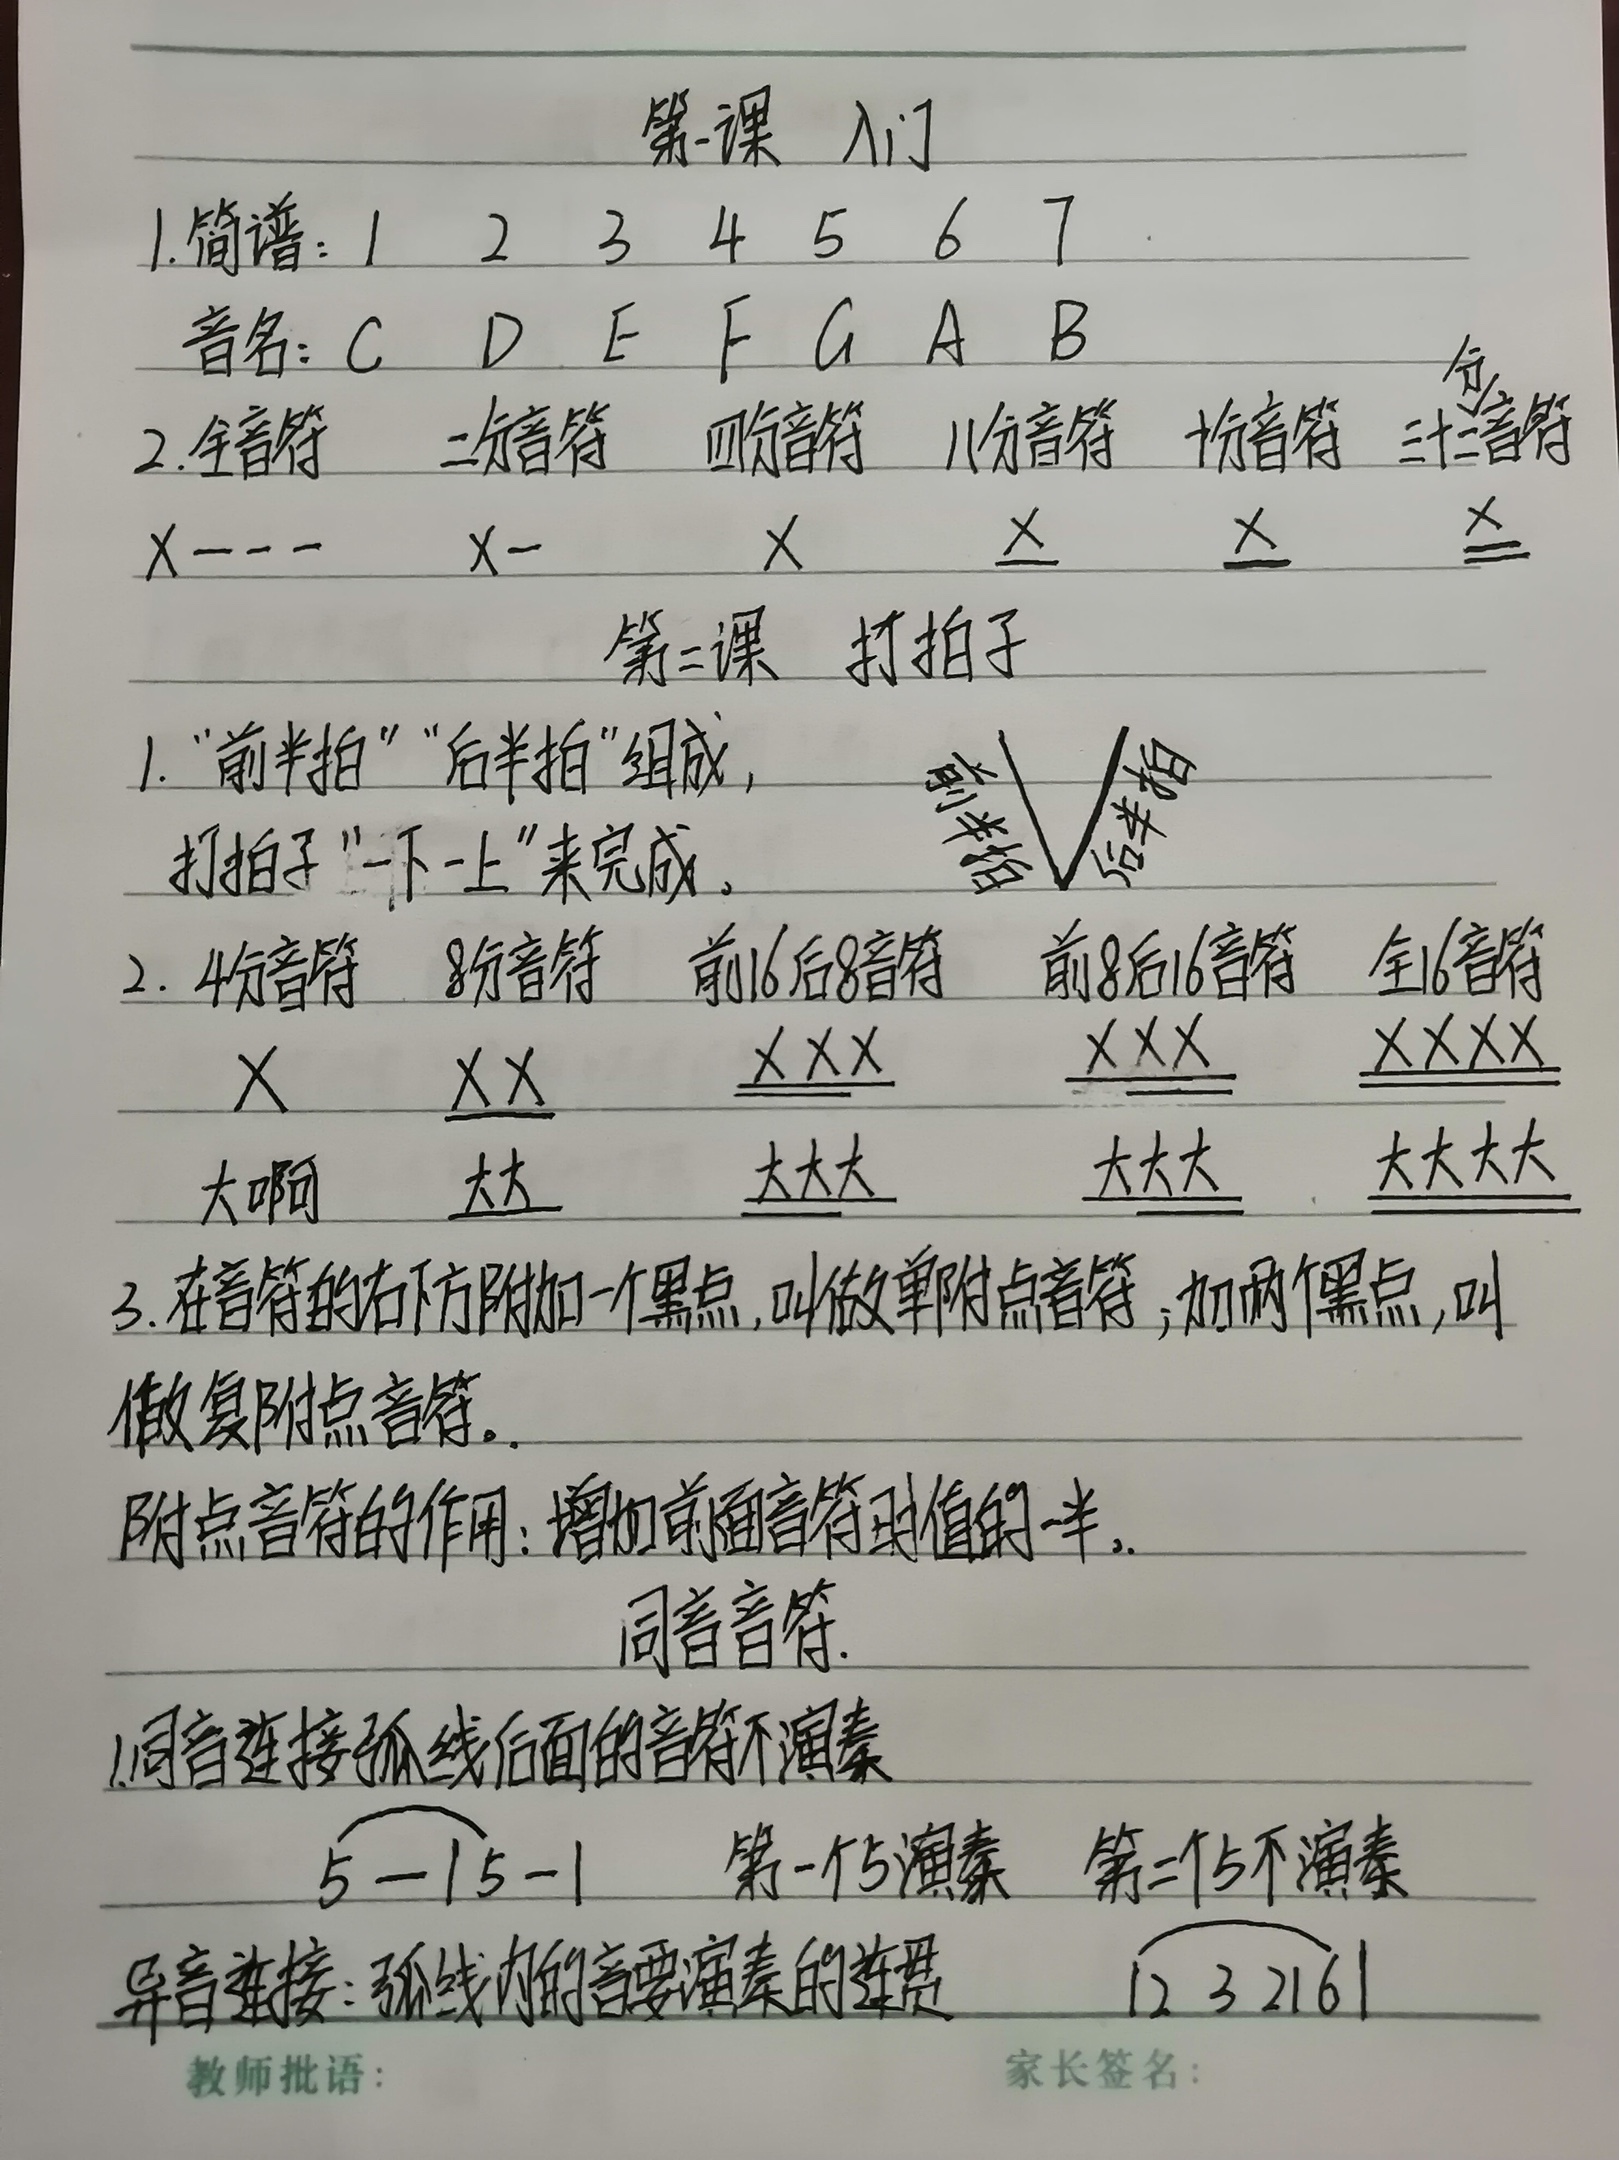 第一课 入门
1.简谱: 1 2 3 4 5 6 7
音名: C D E F G A B
分
2.全音符 二分音符 四分音符 八分音符 十份音符 三十二音符
X - - - X - X X X X
第二课 打拍子
1. "前半拍" "后半拍"组成,
前半拍 后半拍
打拍子"一下一上"来完成.
2. 4分音符 8分音符 前16后8音符 前8后16音符 全16音符
X XX XXX XXX XXXX
大啊 大大 大大大 大大大 大大大大
3.在音符的右下方附加一个黑点,叫做单附点音符;加两个黑点,叫
做复附点音符。
附点音符的作用:增加前面音符时值的一半。
同音音符.
1.同音连接弧线后面的音符不演奏
5 — | 5 - | 第一个5演奏 第二个5不演奏
异音连接:弧线内的音要演奏的连贯 |2 3 216|
教师批语: 家长签名: